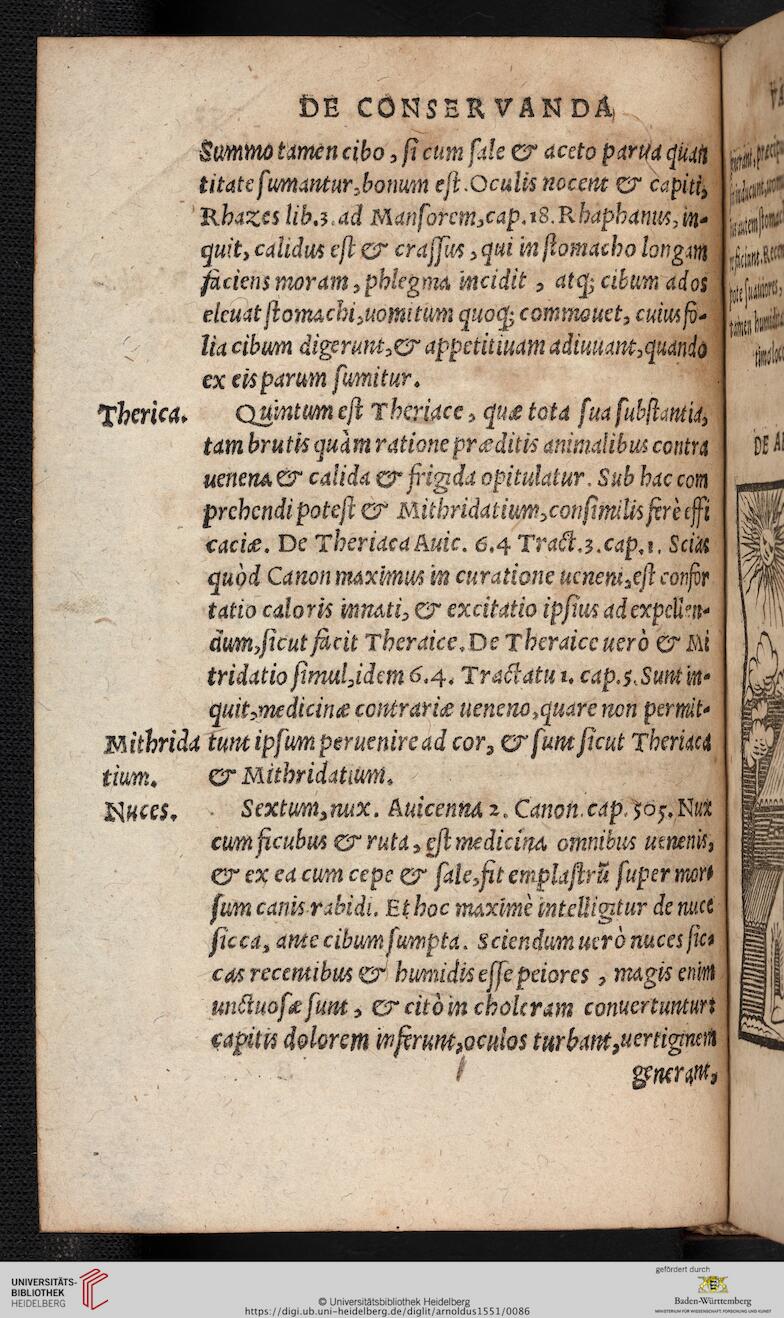 DE CONSERVANDA
Summo tamen cibo, si cum sale & aceto parua quan
titate sumantur, bonum est. Oculis nocent & capiti,
Rhazes lib.3. ad Mansorem, cap.18. Rhaphanus, in-
quit, calidus est & crassus, qui in stomacho longam
faciens moram, phlegma incidit, atq; cibum ad os
eleuat stomachi, uomitum quoq; commouet, cuius fo-
lia cibum digerunt, & appetitiuam adiuuant, quando
ex eis parum sumitur.
Therica. Quintum est Theriace, quæ tota sua substantia,
tam brutis quàm ratione præditis animalibus contra
uenena & calida & frigida opitulatur. Sub hac com
prehendi potest & Mithridatium, consimilis ferè effi
caciæ. De Theriaca Auic. 6.4 Tract.3.cap.1. Scias
quòd Canon maximus in curatione ueneni, est confor
tatio caloris innati, & excitatio ipsius ad expellen-
dum, sicut facit Theraice. De Theraice uerò & Mi
tridatio simul, idem 6.4. Tractatu 1. cap.5. Sunt in-
quit, medicinæ contrariæ ueneno, quare non permit-
Mithrida tunt ipsum peruenire ad cor, & sunt sicut Theriaca
tium. & Mithridatium.
Nuces. Sextum, nux. Auicenna 2. Canon. cap. 505. Nux
cum ficubus & ruta, est medicina omnibus uenenis,
& ex ea cum cepe & sale, fit emplastrū super mor-
sum canis rabidi. Et hoc maximè intelligitur de nuce
sicca, ante cibum sumpta. Sciendum uerò nuces sic-
cas recentibus & humidis esse peiores, magis enim
unctuosæ sunt, & citò in choleram conuertuntur:
capitis dolorem inferunt, oculos turbant, uertiginem
generant,
DE
UNIVERSITÄTS-
BIBLIOTHEK
HEIDELBERG
© Universitätsbibliothek Heidelberg
https://digi.ub.uni-heidelberg.de/diglit/arnoldus1551/0086
gefördert durch
Baden-Württemberg
MINISTERIUM FÜR WISSENSCHAFT, FORSCHUNG UND KUNST